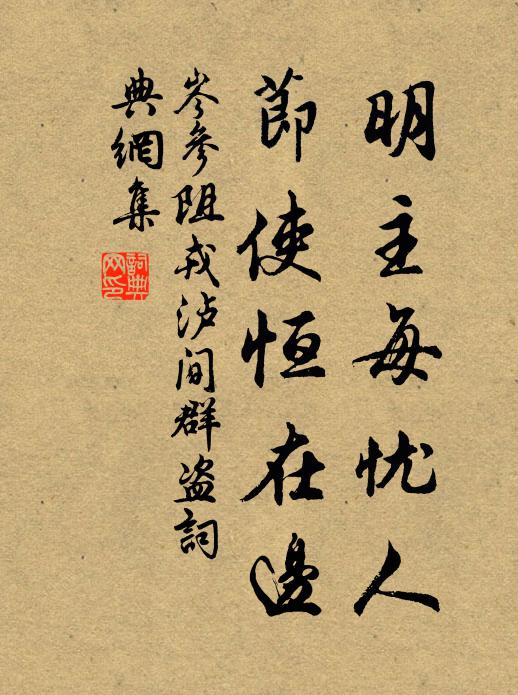 明主每忧人
節使恒在邊
岑參阻戎泸间群盗詞
典網集
詞典网印